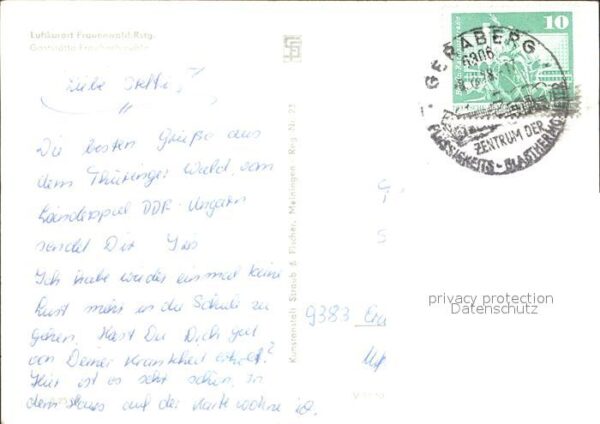 Luftkurort Frauenwald Rstg.
Gaststätte Fraubachmühle
Liebe Steffi,
Die besten Grüße aus
dem Thüringer Wald, vom
Länderspiel DDR-Ungarn
sendet Dir
Ich habe wieder einmal keine
Lust mehr in die Schule zu
gehen. Hast Du Dich gut
von Deiner Krankheit erholt?
Hier ist es sehr schön, in
dem Haus auf der Karte wohne ich.
Kunstanstalt Straub & Fischer, Meiningen Reg. Nr. 23
10
GERABERG
6306
ZENTRUM DER
FLÜSSIGKEITS-GLASTHERMOMETER
9383
privacy protection
Datenschutz